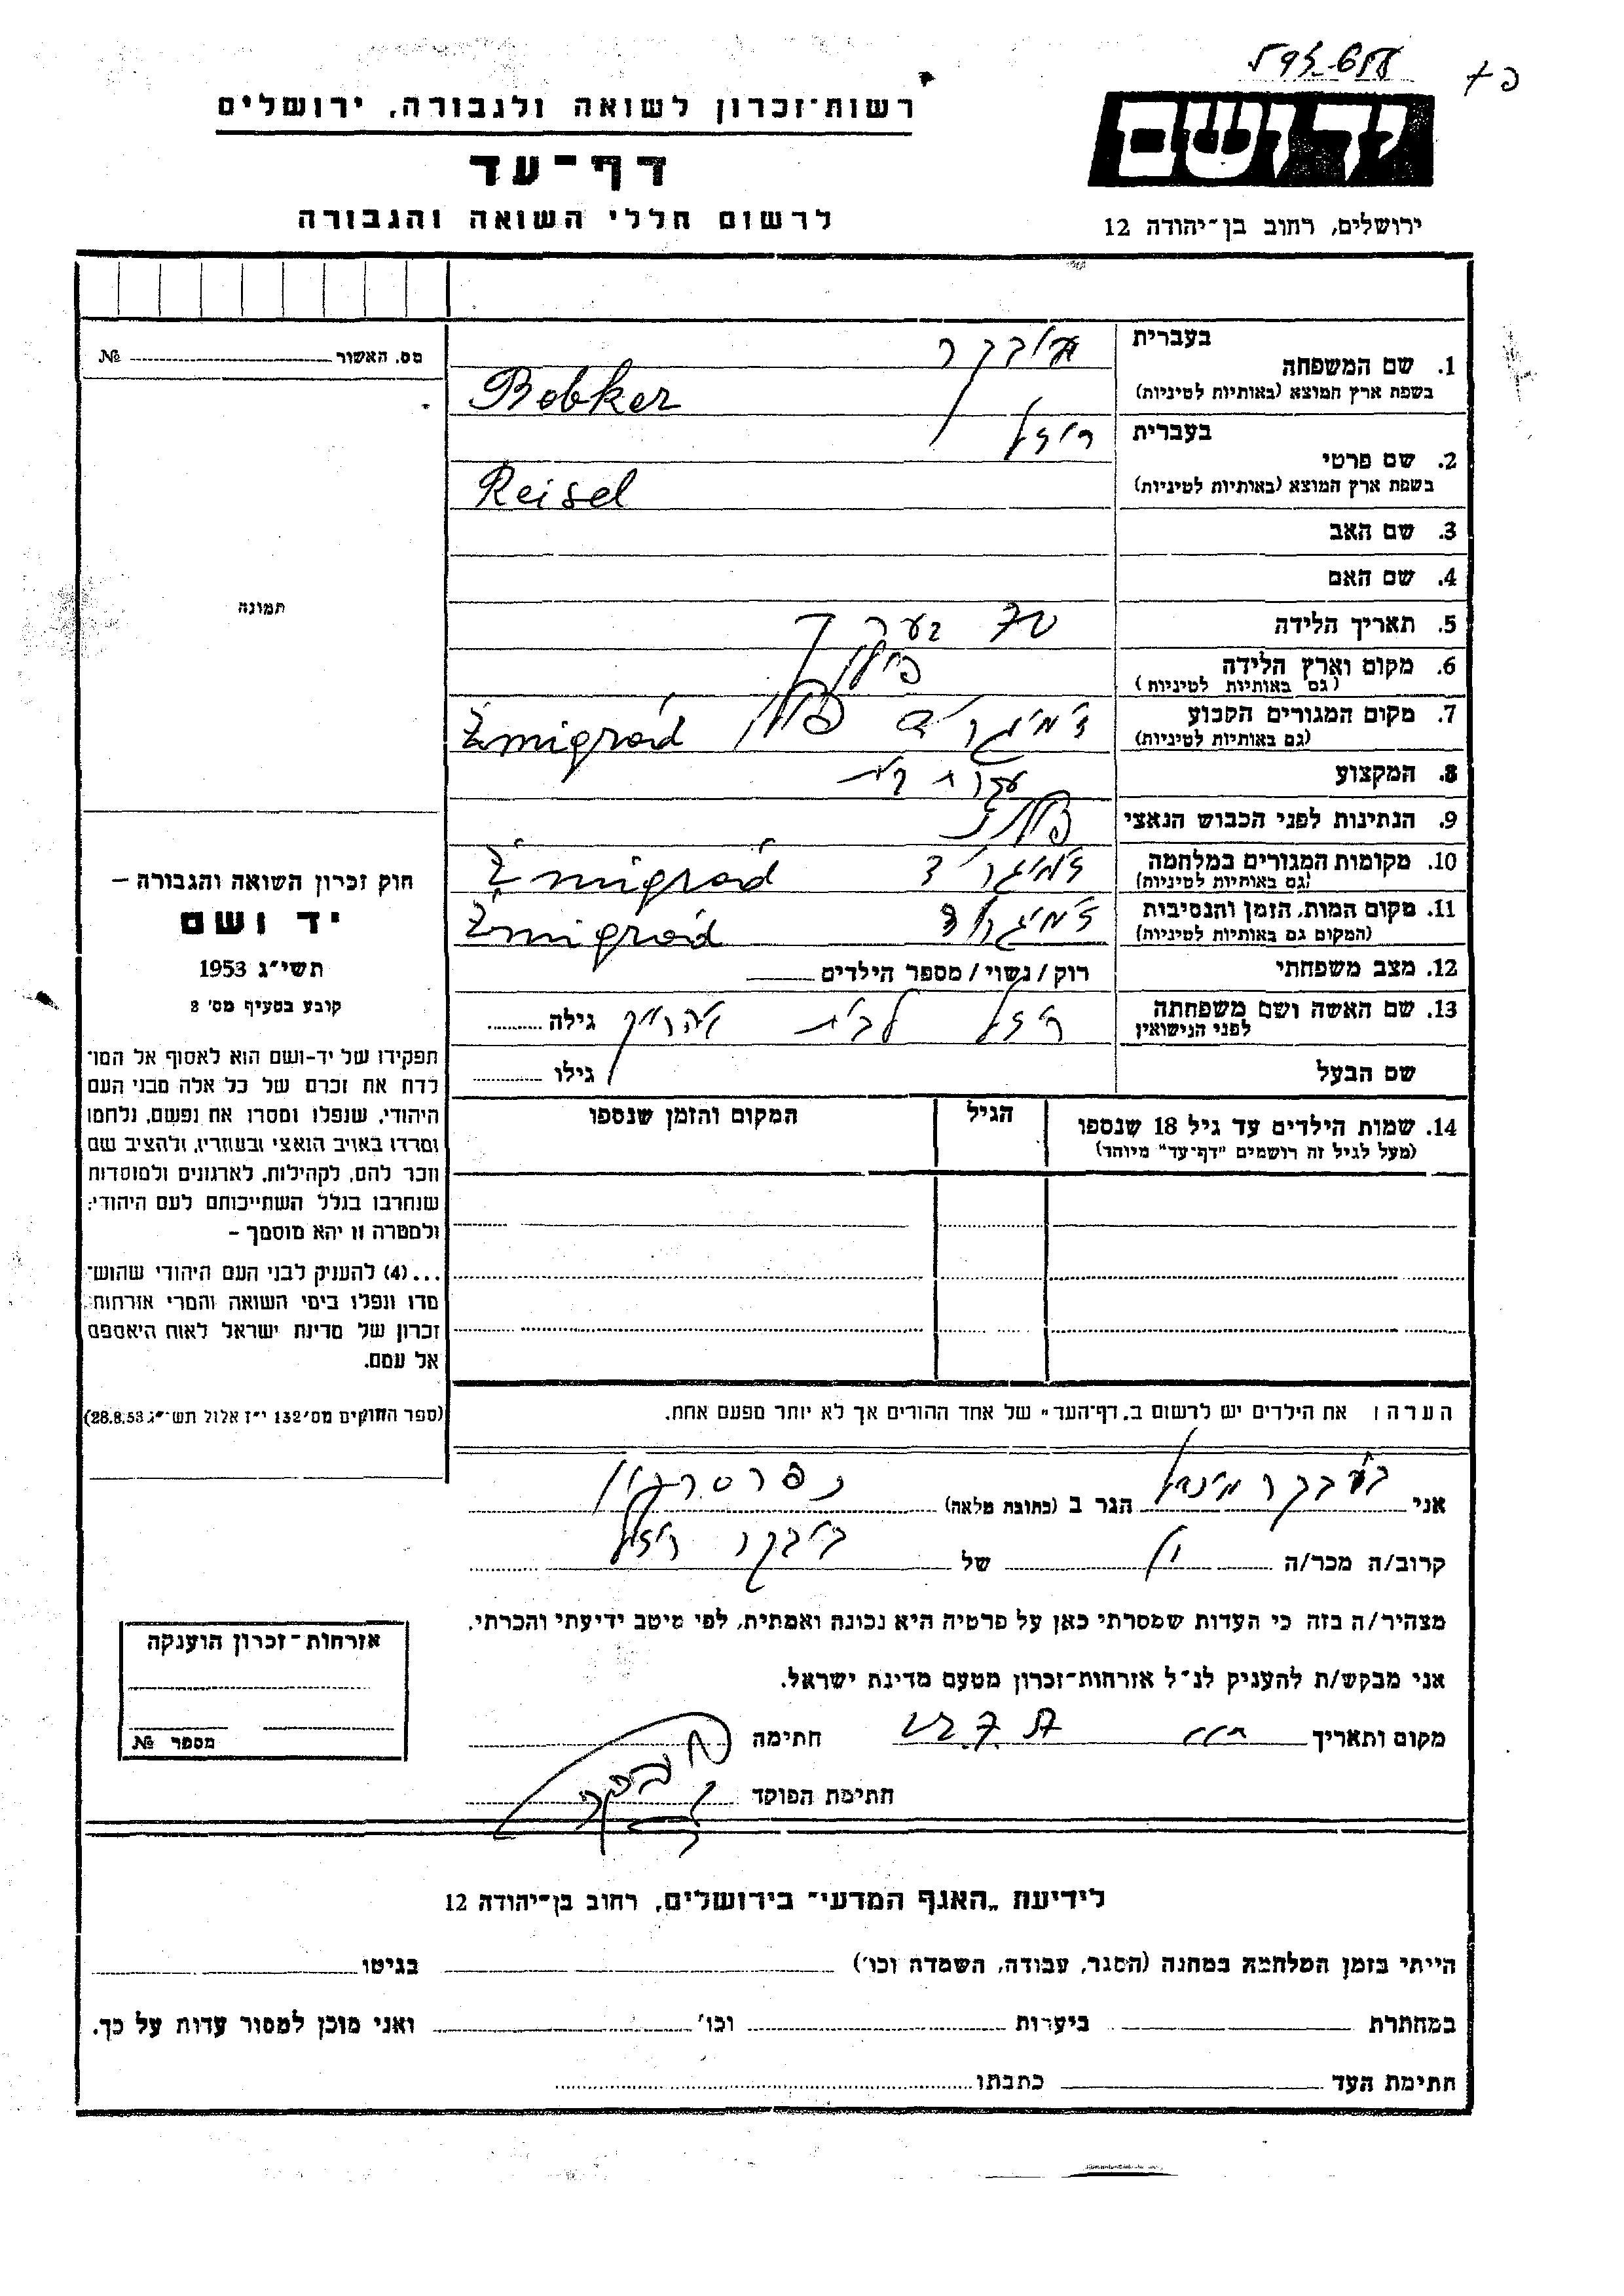 רשות־זכרון לשואה ולגבורה, ירושלים
דף־עד
לרשום חללי השואה והגבורה
יד ושם
ירושלים, רחוב בן־יהודה 12
מס. האשור № 
תמונה
1. שם המשפחה
בעברית בובקר
בשפת ארץ המוצא (באותיות לטיניות) Bobker
2. שם פרטי
בעברית ריזל
בשפת ארץ המוצא (באותיות לטיניות) Reisel
3. שם האב
4. שם האם
5. תאריך הלידה 70 בערך
6. מקום וארץ הלידה פולין
(גם באותיות לטיניות)
7. מקום המגורים הקבוע פולין Żmigród
(גם באותיות לטיניות)
8. המקצוע עקרת בית
9. הנתינות לפני הכבוש הנאצי
10. מקומות המגורים במלחמה Żmigród
(גם באותיות לטיניות)
11. מקום המות, הזמן והנסיבות Żmigród
(המקום גם באותיות לטיניות)
12. מצב משפחתי רוק/נשוי/מספר הילדים
13. שם האשה ושם משפחתה ריזל לבית גילה
לפני הנישואין
שם הבעל גילו
14. שמות הילדים עד גיל 18 שנספו הגיל המקום והזמן שנספו
(מעל לגיל זה רושמים "דף־עד" מיוחד)
הערה: את הילדים יש לרשום ב„דף־העד" של אחד ההורים אך לא יותר מפעם אחת.
חוק זכרון השואה והגבורה –
יד ושם
תשי״ג 1953
קובע בסעיף מס׳ 2
תפקידו של יד־ושם הוא לאסוף אל המו־
לדת את זכרם של כל אלה מבני העם
היהודי, שנפלו ומסרו את נפשם, נלחמו
ומרדו באויב הנאצי ובעוזריו, ולהציב שם
וזכר להם, לקהילות, לארגונים ולמוסדות
שנחרבו בגלל השתייכותם לעם היהודי;
ולמטרה זו יהא מוסמך –
...(4) להעניק לבני העם היהודי שהוש־
מדו ונפלו בימי השואה והמרי אזרחות־
זכרון של מדינת ישראל לאות היאספם
אל עמם.
(ספר החוקים מס׳ 132 י״ז אלול תשי״ג 28.8.53)
אני בובקר הגר ב (כתובת מלאה)
קרוב/ה מכר/ה של בובקר ריזל
מצהיר/ה בזה כי העדות שמסרתי כאן על פרטיה היא נכונה ואמתית, לפי מיטב ידיעתי והכרתי.
אני מבקש/ת להעניק לנ״ל אזרחות־זכרון מטעם מדינת ישראל.
מקום ותאריך חתימה
חתימת הפוקד
אזרחות־זכרון הוענקה
מספר №
לידיעת „האגף המדעי" בירושלים, רחוב בן־יהודה 12
הייתי בזמן המלחמה במחנה (הסגר, עבודה, השמדה וכו׳) בגיטו
במחתרת ביערות וכו׳ ואני מוכן למסור עדות על כך.
חתימת העד כתבתו